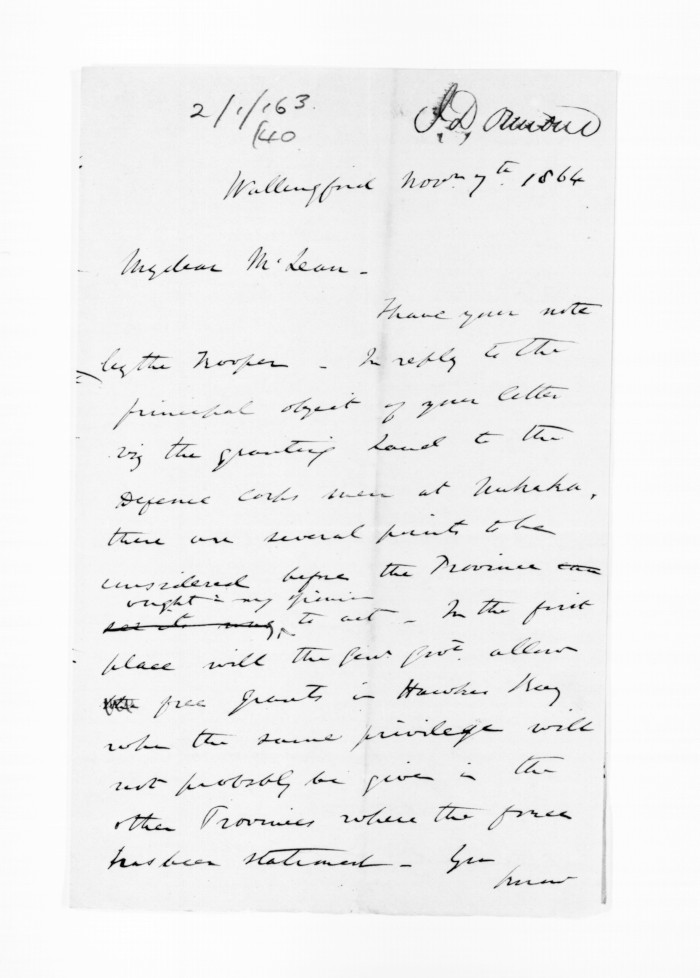 2/1/163.
/40
J.D. Ormond
Wallingford Novr 7th 1864
My dear McLean -
I have your note
by the Trooper - In reply to the
principal object of your letter
viz the granting Land to the
Defence Corps men at Nuhaka,
there are several points to be
considered before the Province can
ought in my opinion
see its way to act - In the first
place will the Genl Govt. allow
free grants in Hawkes Bay
when the same privilege will
not probably be given in the
other Provinces where the force
has been stationed - You
know